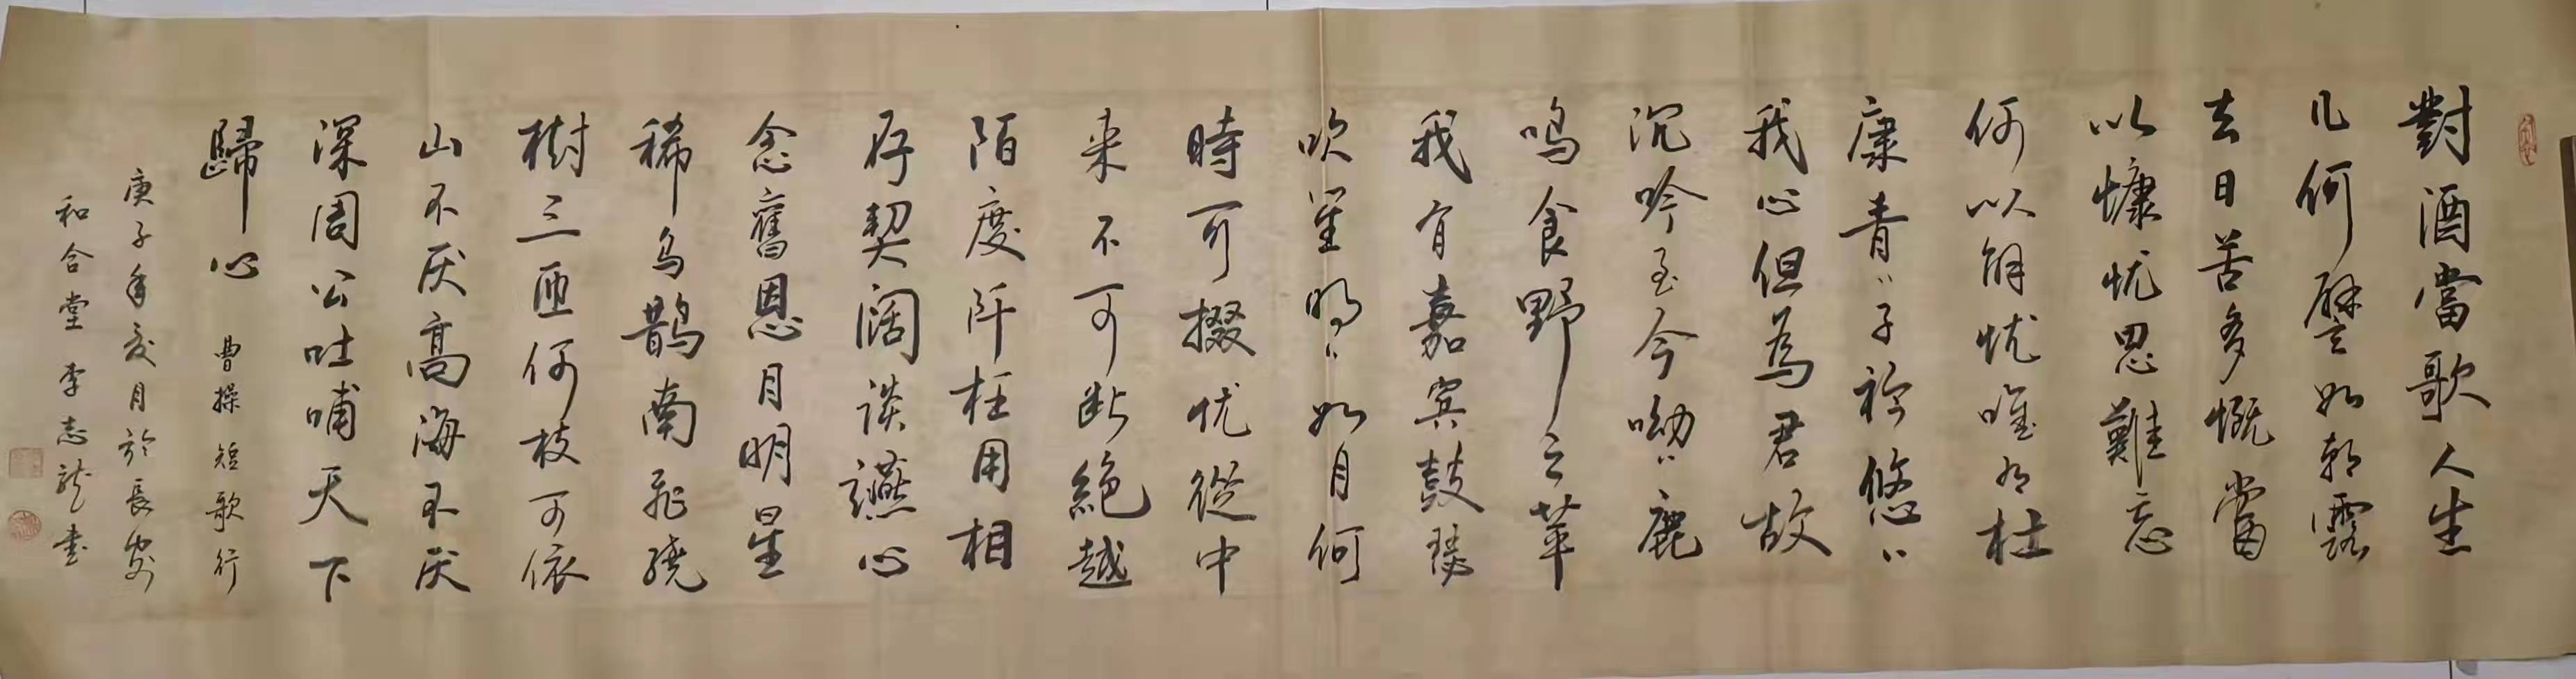 對酒當歌人生
几何譬如朝露
去日苦多慨當
以慷忧思難忘
何以解忧唯有杜
康青〻子衿悠〻
我心但為君故
沉吟至今呦〻鹿
鸣食野之苹
我有嘉宾鼓瑟
吹笙明〻如月何
時可掇忧從中
来不可断絕越
陌度阡枉用相
存契阔谈讌心
念舊恩月明星
稀乌鹊南飛绕
樹三匝何枝可依
山不厌高海不厌
深周公吐哺天下
歸心 曹操短歌行
庚子年夏月於長安
和合堂 李志龙书